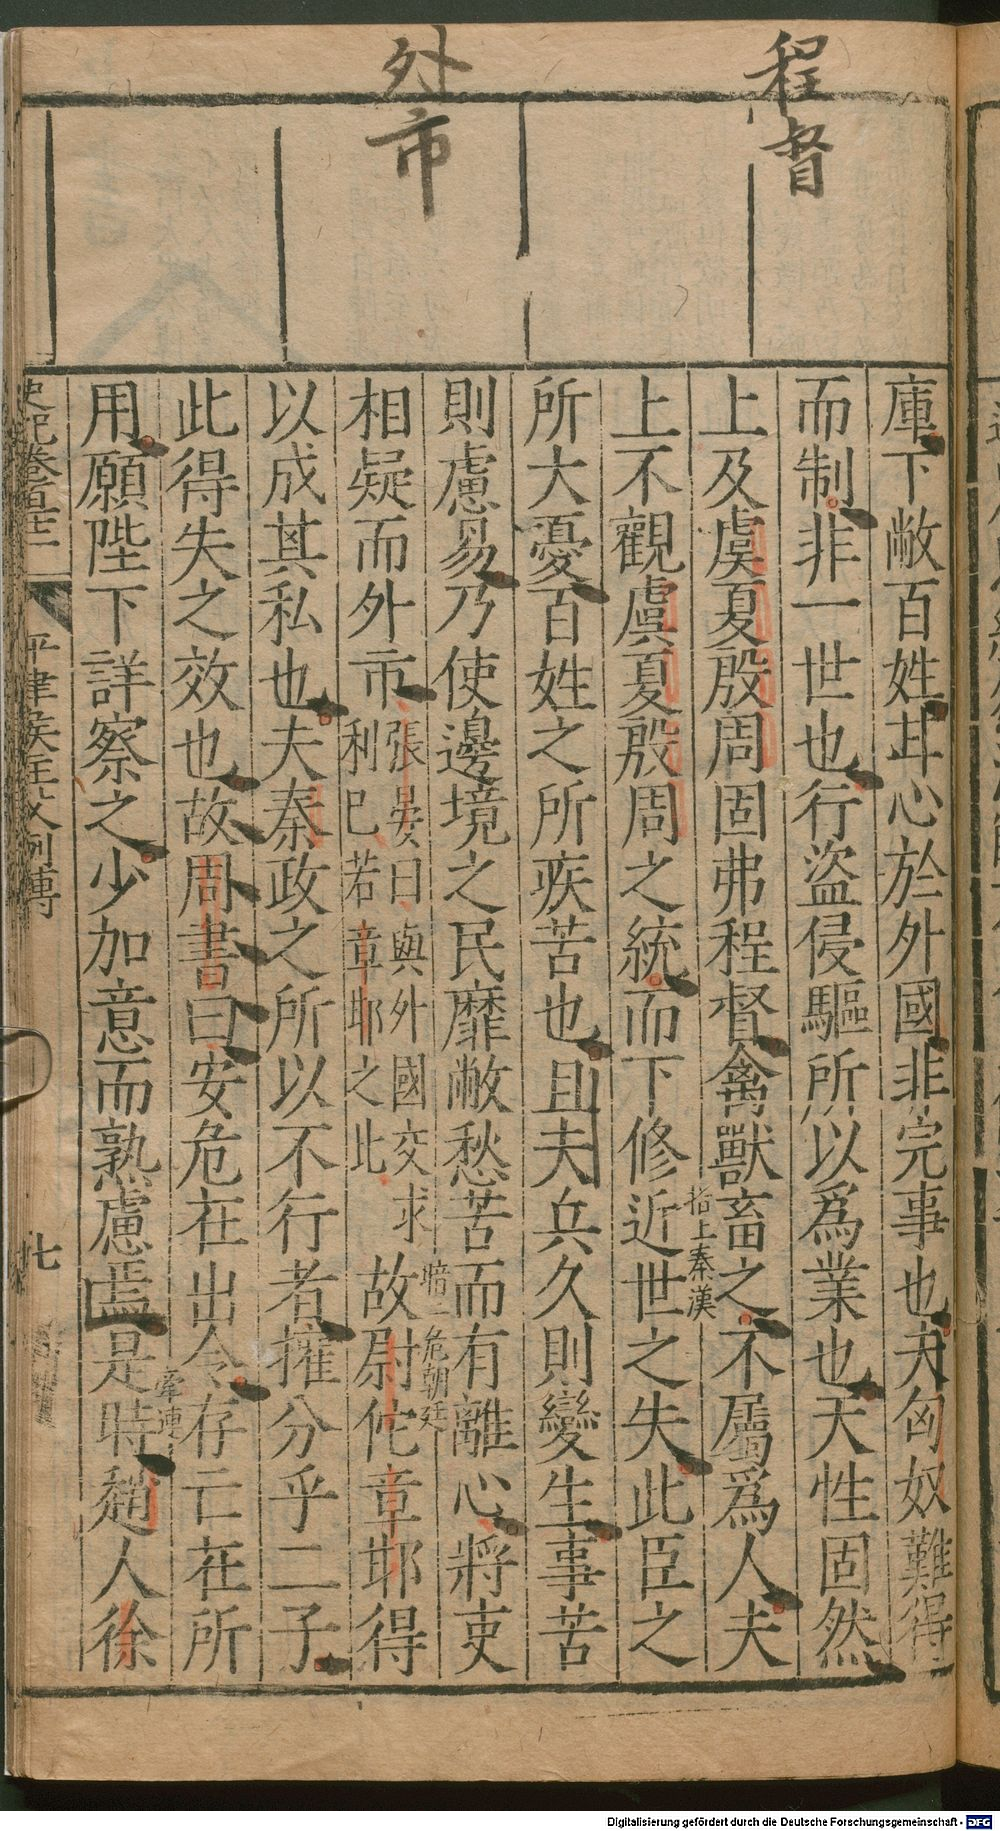 程督
外市
庫下敝百姓甘心於外國非完事也夫匈奴難得
而制非一世也行盜侵驅所以為業也天性固然
上及虞夏殷周固弗程督禽獸畜之不屬為人夫
上不觀虞夏殷周之統而下修近世之失此臣之
指上秦漢
所大憂百姓之所疾苦也且夫兵久則變生事苦
則慮易乃使邊境之民靡敝愁苦而有離心將吏
相疑而外市張晏曰與外國交求利已若章邯之此故尉佗章邯得
危朝廷
以成其私也夫秦政之所以不行者權分乎二子
此得失之效也故周書曰安危在出令存亡在所
用願陛下詳察之少加意而熟慮焉是時趙人徐
牽連
史記卷百十二
平津侯主父列傳
七
Digitalisierung gefördert durch die Deutsche Forschungsgemeinschaft - DFG